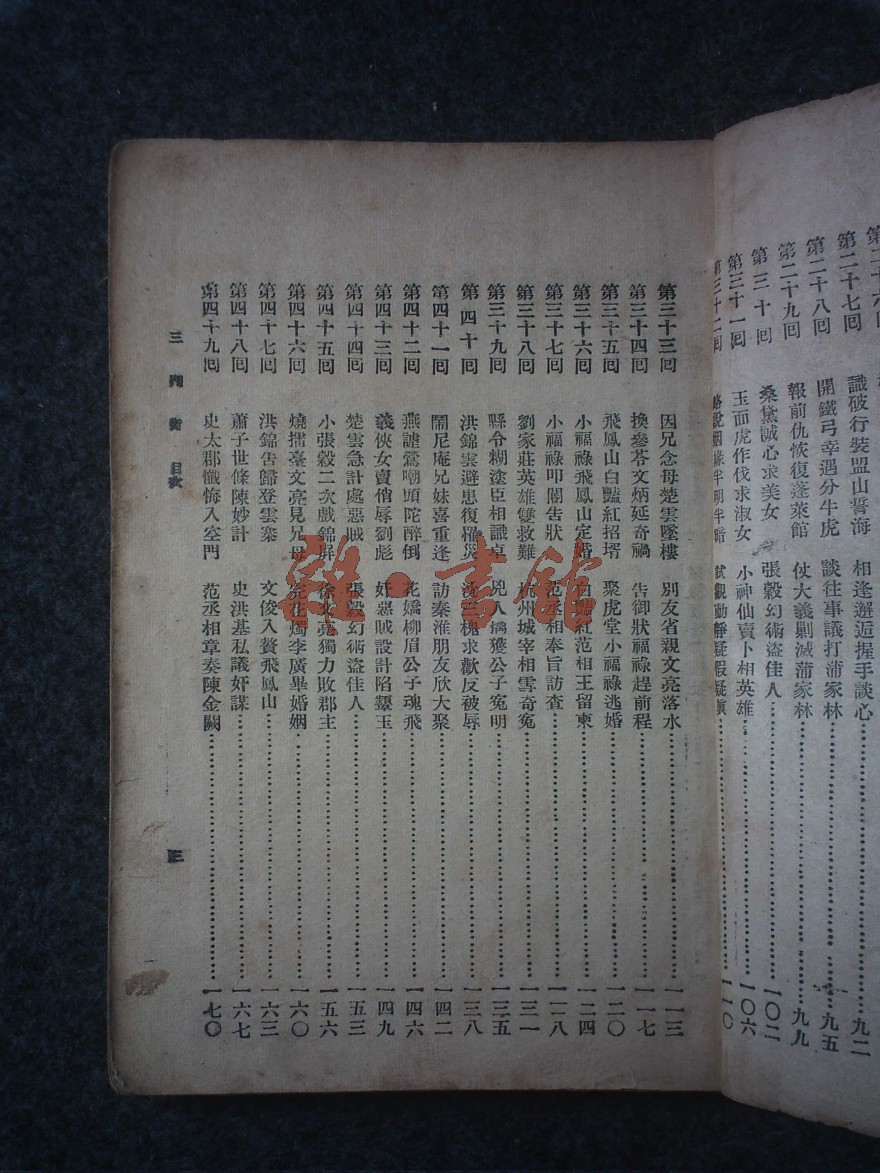 第二十七回 識破行裝盟山誓海 相逢邂逅握手談心 九二
第二十八回 開鐵弓幸遇分牛虎 談往事議打蒲家林 九五
第二十九回 報前仇恢復蓬萊館 仗大義剿滅蒲家林 九九
第三十回 桑黛誠心求美女 張穀幻術盜佳人 一〇二
第三十一回 玉面虎作伐求淑女 小神仙賣卜相英雄 一〇六
第三十二回 略說姻緣半明半暗 試觀動靜疑假疑真 一一〇
第三十三回 因兄念母楚雲墜樓 別友省親文亮落水 一一三
第三十四回 換參苓文炳延奇禍 告御狀福祿趕前程 一一七
第三十五回 飛鳳山白豔紅招壻 聚虎堂小福祿逃婚 一二〇
第三十六回 小福祿飛鳳山定婚 白豔紅范相王留柬 一二四
第三十七回 小福祿叩閽告狀 范丞相奉旨訪查 一二八
第三十八回 劉家莊英雄雙救難 杭州城宰相雪奇冤 一三一
第三十九回 縣令糊塗臣相識卓 兇人擒獲公子冤明 一三五
第四十回 洪錦雲避患復罹災 沈三槐求歡反被辱 一三八
第四十一回 鬧尼庵兄妹喜重逢 訪秦淮朋友欣大聚 一四二
第四十二回 燕謔鶯嘲頭陀醉倒 花嬌柳眉公子魂飛 一四六
第四十三回 義俠女賣俏辱劉彪 奸惡賊設計陷顰玉 一四九
第四十四回 楚雲急計處惡賊 張穀幻術盜佳人 一五三
第四十五回 小張穀二次戲錦屏 徐文亮獨力敗郡主 一五六
第四十六回 燒擂臺文亮見兄母 完花燭李廣畢婚姻 一六〇
第四十七回 洪錦告歸登雲寨 文俊入贅飛鳳山 一六三
第四十八回 蕭子世條陳妙計 史洪基私議奸謀 一六七
第四十九回 史太郡懺悔入空門 范丞相章奏陳金闕 一七〇
三門街 目次 三
毅·書館